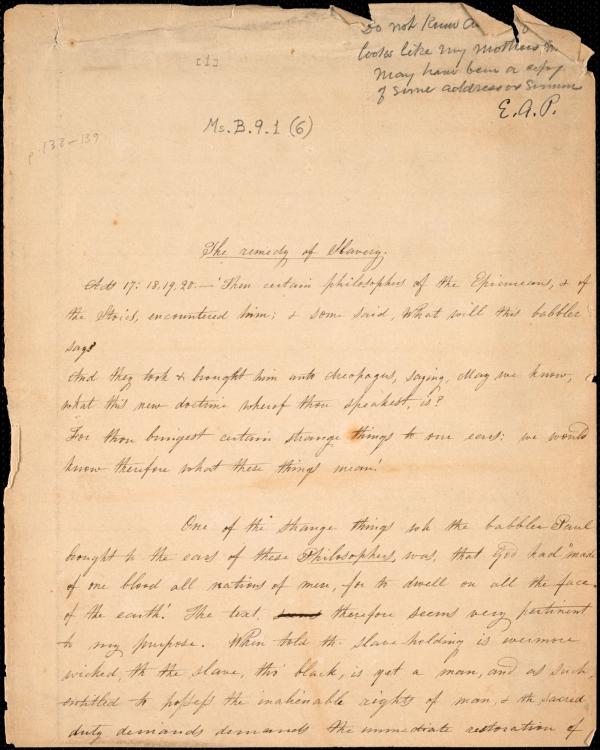 Do not know
looks like my mothers
may have been a copy
of some address or Sermon
E.A.P.
[1]
Ms. B. 9. 1 (6)
p. 138-139
The remedy of Slavery.
Acts 17: 18. 19. 20. — 'Then certain philosophers of the Epicureans, & of
the Stoics, encountered him; & some said, What will this babbler
say?
And they took & brought him unto Areopagus, saying, May we know,
what this new doctrine whereof thou speakest, is?
For thou bringest certain strange things to our ears: we would
know therefore what these things mean.'
One of the strange things wh the babbler Paul
brought to the ears of these Philosophers, was, that God had "made
of one blood all nations of men, for to dwell on all the face
of the earth'. The text, therefore seems very pertinent
to my purpose. When told tht slaveholding is evermore
wicked, tht the slave, tho' black, is yet a man, and as such,
entitled to possess the inalienable rights of man, & tht sacred
duty demands demands the immediate restoration of